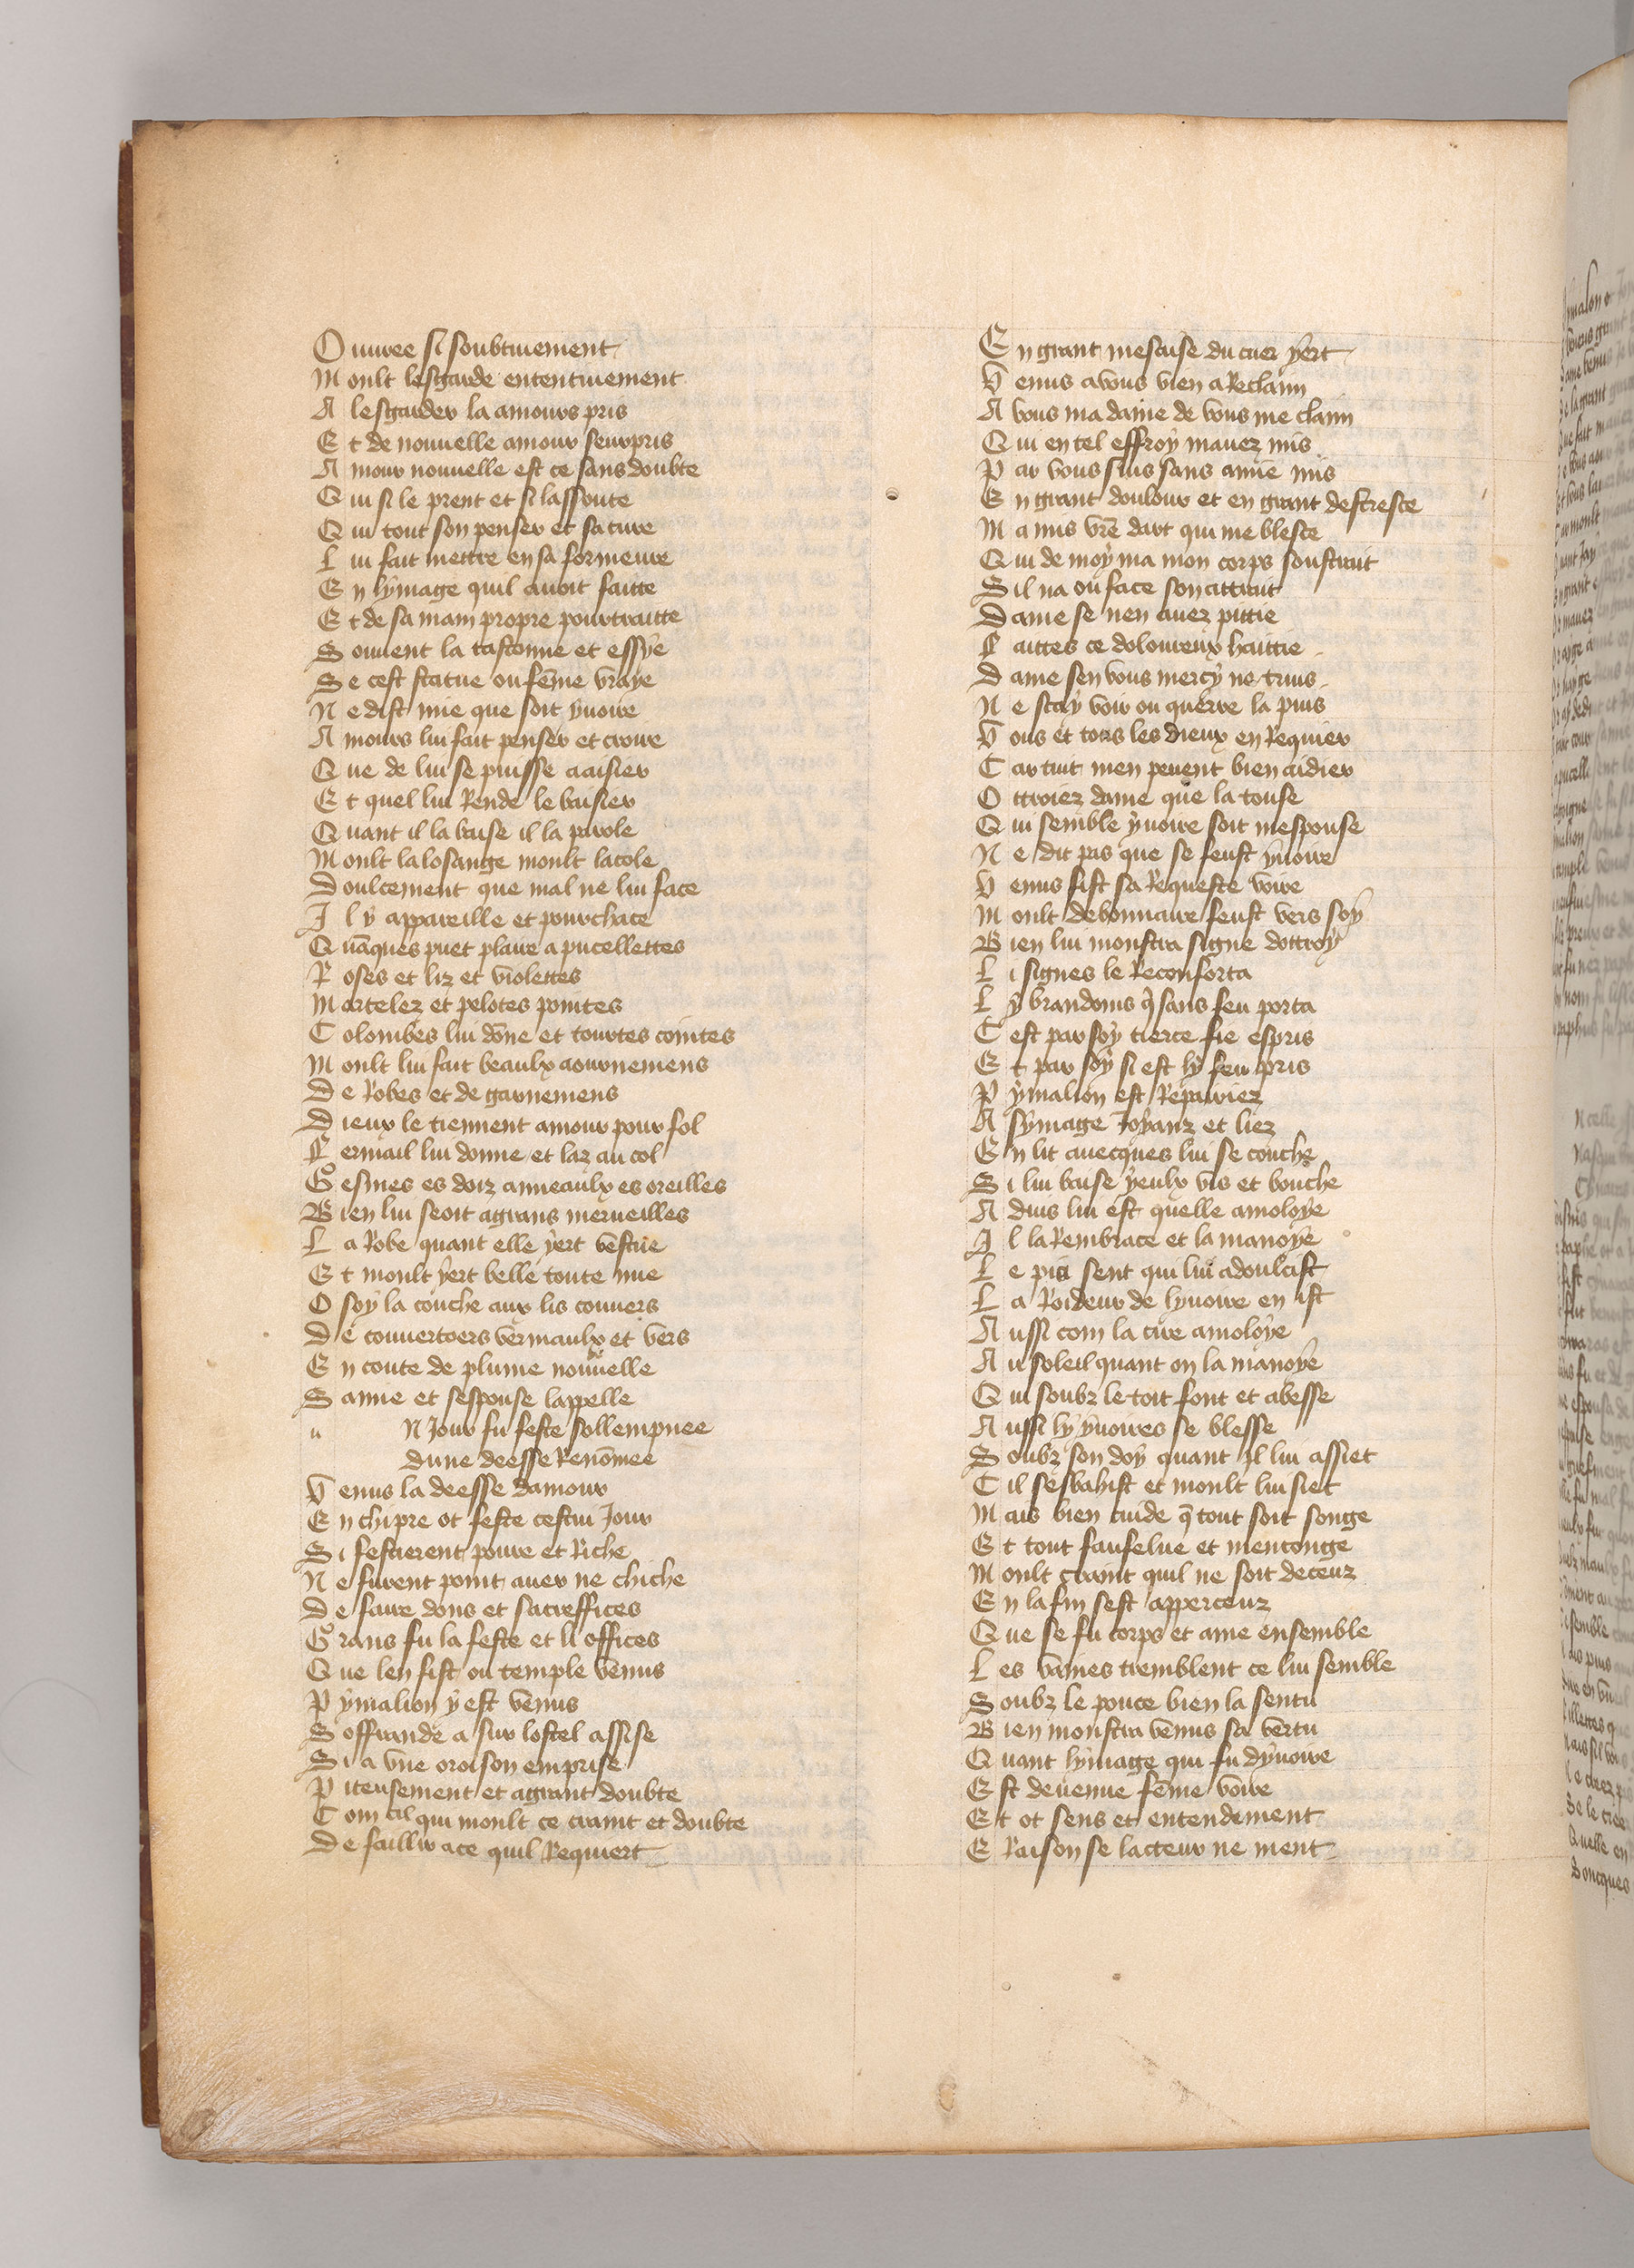 Ouuree si soubtiuement
Moult lesgarde ententiuement
A lesgarder la amours pris
Et de nouuelle amour seurpris
Amour nouuelle est ce sans doubte
Qui si le prent et si lassoute
Qui tout son penser et sa cure
Lui fait mettre en sa formeure
En lymage quil auoit faitte
Et de sa main propre pourtraitte
Souuent la tastonne et essye
Se cest statue ou fême vraye
Ne dist mie que soit yuoire
Amours lui fait penser et croire
Que de lui se puisse aaisier
Et quel lui Rende le baisier
Quant il la baise il la parole
Moult la losange moult lacole
Doulcement que mal ne lui face
Il y appareille et pourchace
Quāques puet plaire a pucellettes
Roses et liz et violettes
Martelez et pelotes pointes
Colombes lui dōne et tourtes cointes
Moult lui fait beaulx aournemens
De Robes et de garnemens
Dieux le tiennent amour pour fol
Fermail lui donne et laz au col
Gesmes es doiz anneaulx es oreilles
Bien lui seoit a grans merueilles
La Robe quant elle yert vestue
Et moult yert belle toute nue
O soy la couche aux lis couuers
De couuertoers vermaulx et vers
En coute de plume nouuelle
Samie et sespouse lappelle
u NJour fu feste sollempnee
dune deesse Renōmee
Venus la deesse damour
En chipre ot feste cestui Jour
Si festierent poure et Riche
Ne furent point auer ne chiche
De faire dons et sacreffices
Grans fu la feste et li offices
Que len fist ou temple venus
Pymalion y est venus
Soffrande a sur lostel assise
Si a vne oroison emprise
Piteusement et a grant doubte
Com cil qui moult ce craint et doubte
De faillir a ce quil Requiert
En grant mesaise du cuer yert
Venus a vous vien a Reclaim
A vous ma dame de vous me claim
Qui en tel effroy mauez mis
Par vous suis sans amie mis
En grant doulour et en grant destresce
Ma mis vr̄e dart qui me blesce
Qui de moy ma mon corps soustrait
Sil na ou face son attrait
Dame se nen auez pittie
Faittes ce doloureux haittie
Dame sen vous mercy ne truis
Ne scay voir ou querre la puis
Vous et tous les dieux en Requier
Car tuit men peuent bien aidier
Ottroiez dame que la touse
Qui semble yuoire soit mespouse
Ne dit pas que se feust yuoire
Venus fist sa Requeste voire
Moult debonnaire feust vers soy
Bien lui monstra signe dottroy
Li signes le Reconforta
Ly brandonis q̄ sans feu porta
Cest par soy tierce fie espris
Et par soy si est ly feu pris
Pymalion est Repairiez
A symage Joyanz et liez
En lit auecques lui se couche
Si lui baise yeulx vis et bouche
Aduis lui est quelle amoloye
Il la Rembrace et la manoye
Le pis sent qui lui adoulcist
La Roideur de lyuoire en ist
Aussi com la cire amoloye
Au soleil quant on la manoye
Qui soubz le toit font et abesse
Aussi ly yuoires se blesse
Soubz son doy quant Il lui assiet
Cil sesbahist et moult lui siet
Mais bien cuide q̄ tout soit songe
Et tout faufelue et mencongé
Moult craint quil ne soit deceuz
En la fin sest apperceuz
Que se fu corps et ame ensemble
Les vaines tremblent ce lui semble
Soubz le pouce bien la sentu
Bien monstra venus sa vertu
Quant lymage qui fu dyuoire
Est deuenue fēme voire
Et ot sens et entendement
E Raison se lacteur ne ment